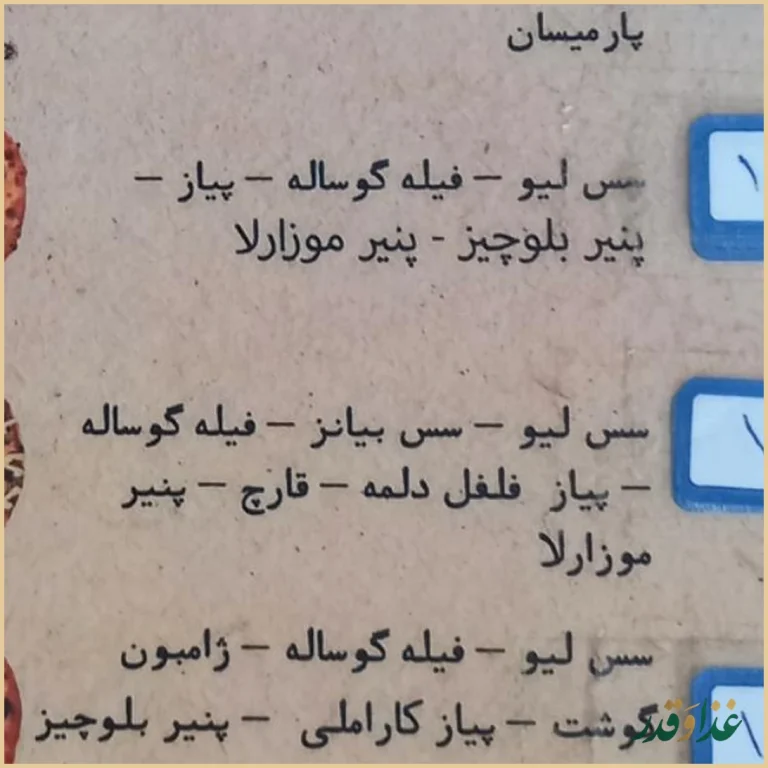 پارمیسان
سس لیو – فیله گوساله – پیاز –
پنیر بلوچیز - پنیر موزارلا
سس لیو – سس بیانز – فیله گوساله
– پیاز فلفل دلمه – قارچ – پنیر
موزارلا
سس لیو – فیله گوساله – ژامبون
گوشت – پیاز کاراملی – پنیر بلوچیز
غذا و قدر